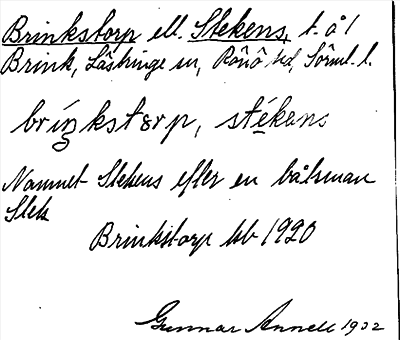 Brinkstorp ell. Stekens, t. å 1
Brink, Lästringe sn, Rönö hd, Sörml. l.
bríŋkstɔrp, stékens
Namnet Stekens efter en båtsman
Stek
Brinkstorp kb 1920
Gunnar Annell 1932